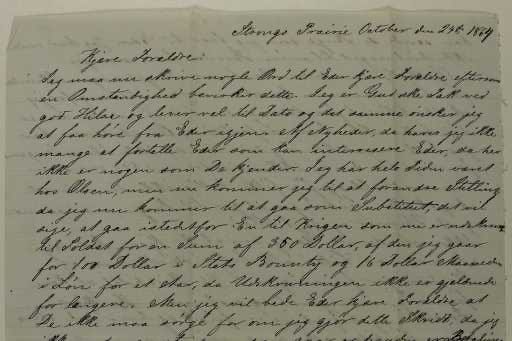 Strongs Prairie October den 24th 1864
Kjære Forældre!
Jeg maa nu skrive nogle Ord til Eder kjære Forældre eftersom
en Omstændighed bevirker dette. Jeg er Gud ske Tak ved
god Hilse og lever vel til Dato og det samme ønsker jeg
at faa høre fra Eder igjen. Af Nyheder, da haves jeg ikke
mange at fortelle Eder som kan interessere Eder, da her
ikke er nogen som De kjender. Jeg har hele Tiden været
hos Olsen, men nu kommer jeg til at forandre Stilling
da jeg nu kommer til at gaa som Substitut, det vil
sige, at gaa istedetfor En til Krigen som nu er udskreven
til Soldat for en Sum af 350 Dollar, af den jeg gaar
for 100 Dollar i Stats Bounty og 16 Dollar Maaneden
i Løn for et Aar, da Udskrivningen ikke er gjeldende
for længere. Men jeg vil bede Eder kjære Forældre, at
De ikke maa sørge for om jeg gjør dette Skridt, da jeg
ikke